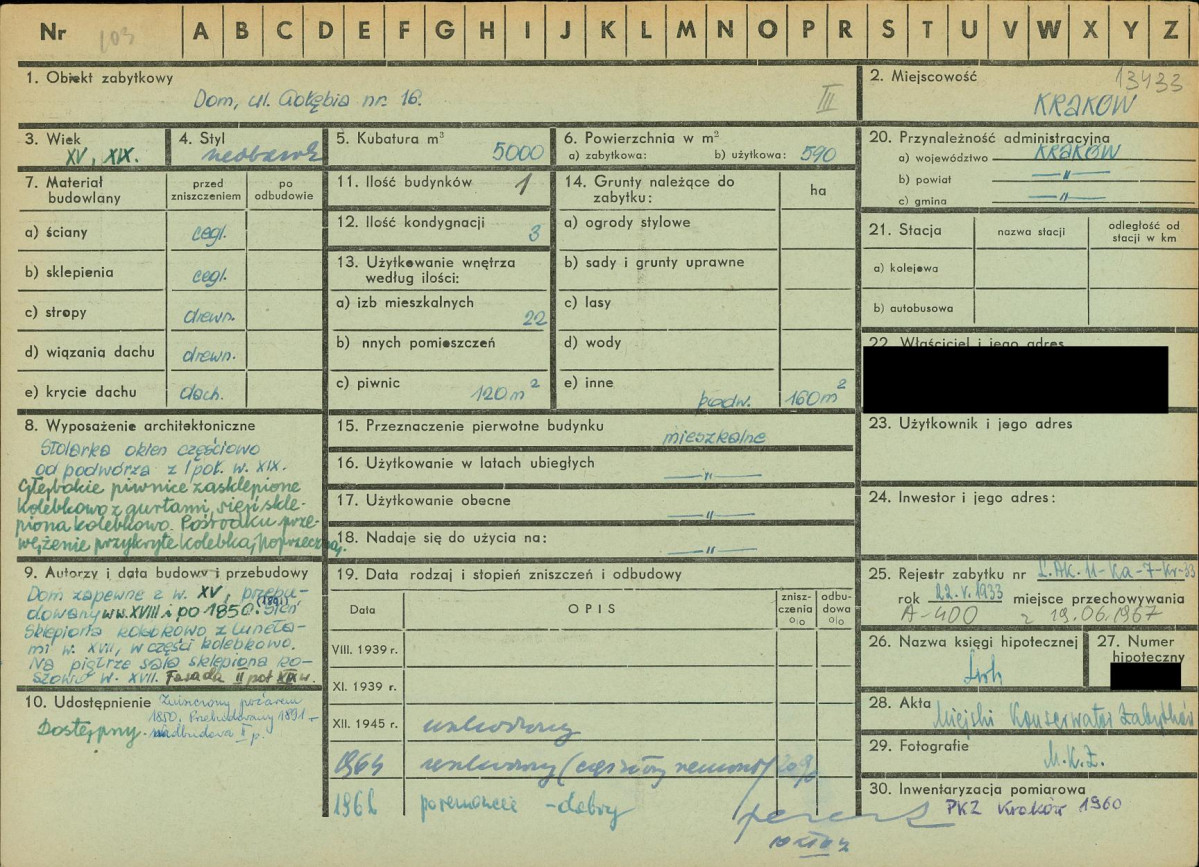 Nr 103 A B C D E F G H I J K L M N O P R S T U V W X Y Z
1. Obiekt zabytkowy
Dom, ul. Gołębia nr. 16.
III
2. Miejscowość
13433
KRAKÓW
3. Wiek
XV, XIX.
4. Styl
5. Kubatura m³
5000
6. Powierzchnia w m²
a) zabytkowa: b) użytkowa: 590
20. Przynależność administracyjna
a) województwo KRAKÓW
b) powiat —"—
c) gmina —"—
7. Materiał budowlany
przed zniszczeniem
po odbudowie
a) ściany cegl.
b) sklepienia cegl.
c) stropy drewn.
d) wiązania dachu drewn.
e) krycie dachu dach.
11. Ilość budynków 1
12. Ilość kondygnacji 3
13. Użytkowanie wnętrza
według ilości:
a) izb mieszkalnych 22
b) nnych pomieszczeń
c) piwnic 120 m²
14. Grunty należące do
zabytku:
ha
a) ogrody stylowe
b) sady i grunty uprawne
c) lasy
d) wody
e) inne podw. 160 m²
21. Stacja
nazwa stacji
odległość od
stacji w km
a) kolejowa
b) autobusowa
22. Właściciel i jego adres
23. Użytkownik i jego adres
24. Inwestor i jego adres:
8. Wyposażenie architektoniczne
Stolarka okien częściowo
od podwórza z I poł. w. XIX.
Głębokie piwnice zasklepione
kolebkowo z gurtami, sień skle-
piona kolebkowo. Pośrodku prze-
wężenie przykryte kolebką poprzeczną.
15. Przeznaczenie pierwotne budynku
mieszkalne
16. Użytkowanie w latach ubiegłych
—"—
17. Użytkowanie obecne
—"—
18. Nadaje się do użycia na:
—"—
9. Autorzy i data budowy i przebudowy
Dom zapewne z w. XV, przebu-
dowany w w. XVIII i po 1850. (1891) Sień
sklepiona kolebkowo z luneta-
mi w. XVII, w części kolebkowo.
Na piętrze sala sklepiona ko-
szowo w. XVII. Fasada II poł XIX w.
10. Udostępnienie
Zniszczony pożarem
1850. Przebudowany 1891 -
nadbudowa II p.
Dostępny.
19. Data rodzaj i stopień zniszczeń i odbudowy
Data
OPIS
znisz-
czenia
%
odbu-
dowa
%
VIII. 1939 r.
XI. 1939 r.
XII. 1945 r.
1964 (częściowy remont) 20%
1962 po remoncie - dobry
25. Rejestr zabytku nr L.AK. 11-Ka-7-Kr-33
rok 22.V.1933 miejsce przechowywania
A-400 z 19.06.1967
26. Nazwa księgi hipotecznej
27. Numer
hipoteczny
28. Akta
Miejski Konserwator Zabytków
29. Fotografie
M.K.Z.
30. Inwentaryzacja pomiarowa
PKZ Kraków 1960